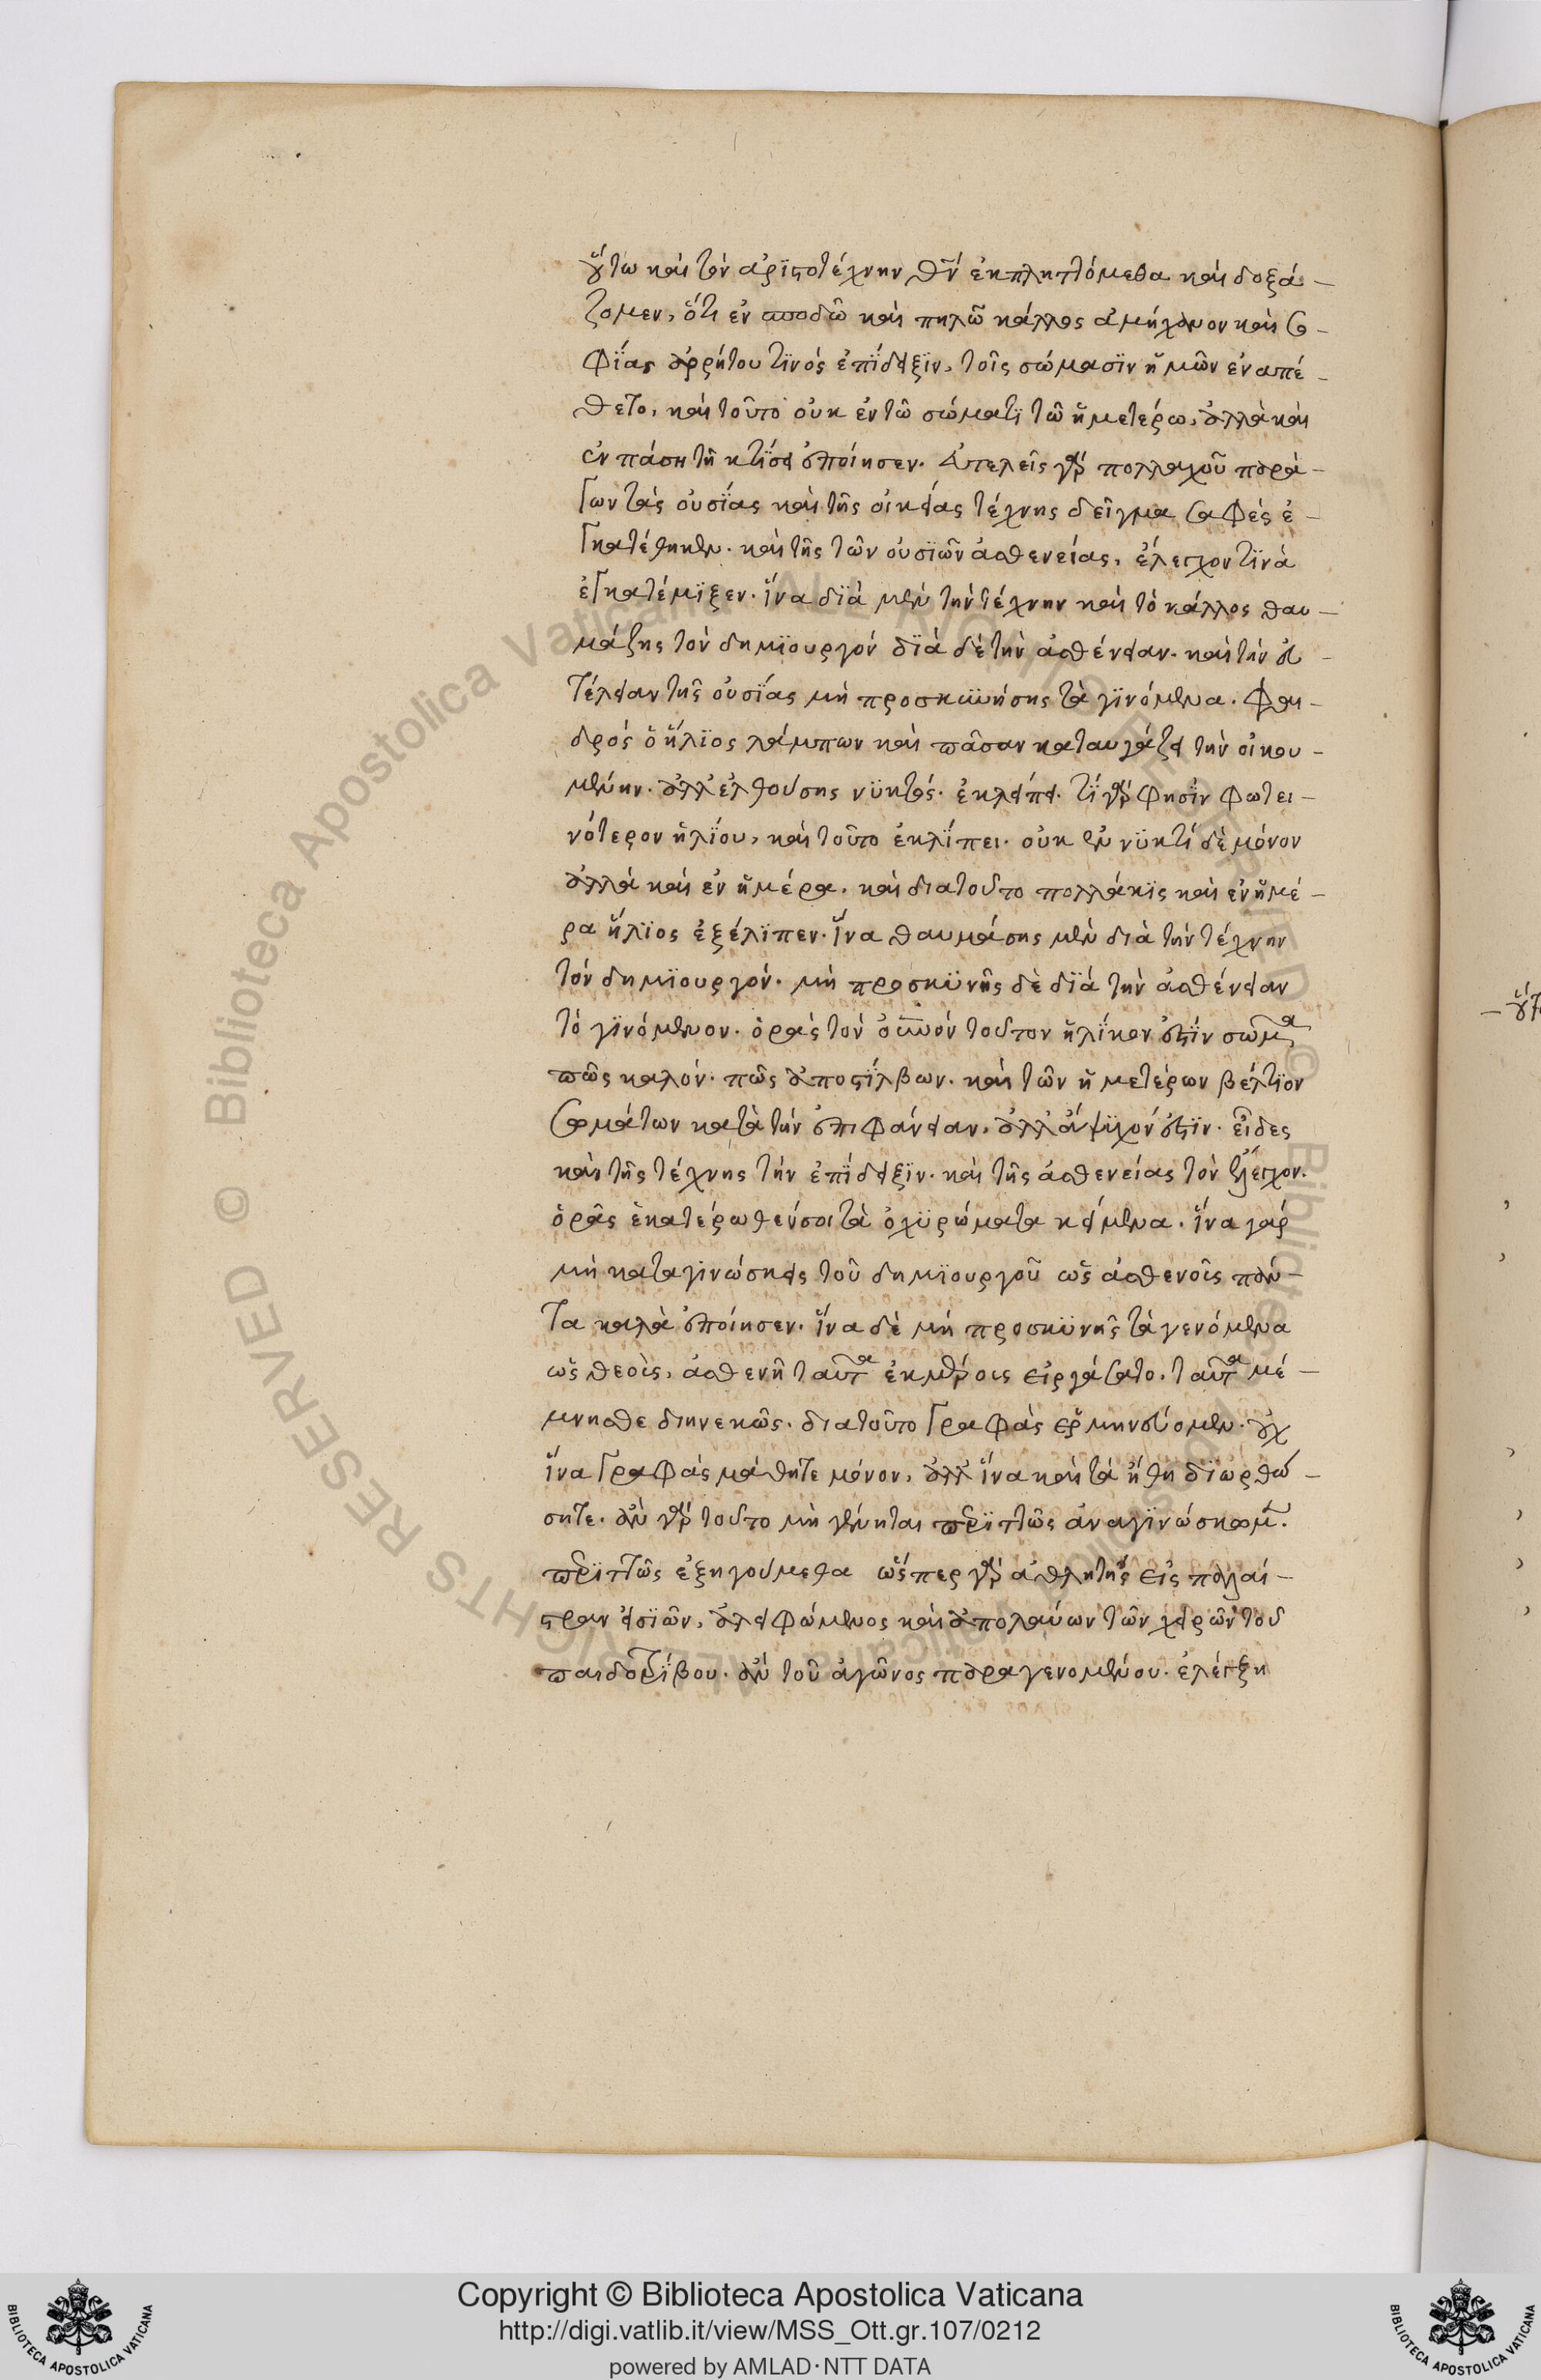 οὕτω καὶ τὸν ἀρϊστοτέχνην θν̅ ἐκπληττόμεθα καὶ δοξά-
ζομεν, ὅτι ἐν σποδῶ καὶ πηλῶ κάλλος ἀμήχανον καὶ σο-
φΐας ἀρρήτου τϊνὸς ἐπΐδειξϊν, τοῖς σώμασϊν ἡμῶν ἐναπέ-
θετο, καὶ τοῦτο οὐκ ἐν τῶ σώματϊ τῶ ἡμετέρω, ἀλλὰ καὶ
ἐν πάση τῆ κτΐσει ἐποίησεν. ἀτελεῖς γὰρ πολλαχοῦ παρά-
γων τὰς οὐσΐας καὶ τῆς οἰκείας τέχνης δεῖγμα σαφὲς ἐ-
γκατέθηκεν. καὶ τῆς τῶν οὐσϊῶν ἀσθενείας, ἔλεγχον τϊνὰ
ἐγκατέμϊξεν. ἵνα δϊὰ μὲν τὴν τέχνην καὶ τὸ κάλλος θαυ-
μάζης τὸν δημϊουργόν δϊὰ δὲ τὴν ἀσθένειαν. καὶ τὴν ἀ-
τέλειαν τῆς οὐσΐας μὴ προσκυνήσης τὰ γϊνόμενα. φαι-
δρὸς ὁ ἥλϊος λάμπων καὶ πᾶσαν καταυγάζει τὴν οἰκου-
μένην. ἀλλ' ἐλθούσης νϋκτός. ἐκλείπει. τΐ γὰρ φησΐν φωτει-
νότερον ἡλΐου, καὶ τοῦτο ἐκλΐπει. οὐκ ἐν νϋκτὶ δὲ μόνον
ἀλλὰ καὶ ἐν ἡμέρα. καὶ διατοῦτο πολλάκϊς καὶ ἐν ἡμέ-
ρα ἥλϊος ἐξέλϊπεν. ἵνα θαυμάσης μὲν διὰ τὴν τέχνην
τὸν δημϊουργόν. μὴ προσκϋνῆς δὲ δϊὰ τὴν ἀσθένειαν
τὸ γϊνόμενον. ὁρᾶς τὸν οὐνον τοῦτον ἡλΐκον ἐστΐν σῶμα
πῶς καλόν. πῶς ἀποστΐλβων. καὶ τῶν ἡμετέρων βέλτϊον
σωμάτων κατὰ τὴν ἐπιφάνειαν, ἀλλ' ἄψϋχόν ἐστϊν. εἶδες
καὶ τῆς τέχνης τὴν ἐπΐδειξϊν. καὶ τῆς ἀσθενείας τὸν ἔλεγχον.
ὁρᾶς ἑκατέρωθέν σοι τὰ ὀχϋρώματα κείμενα. ἵνα γὰρ
μὴ καταγϊνώσκεις τοῦ δημϊουργοῦ ὡς ἀσθενοῖς πάν-
τα καλὰ ἐποίησεν. ἵνα δὲ μὴ προσκϋνῆς τὰ γενόμενα
ὡς θεοὶς, ἀσθενῆ ταῦτα ἐκ μέρους εἰργάσατο. ταῦτα μέ-
μνησθε διηνεκῶς. διατοῦτο γραφὰς ἑρμηνεύομεν. οὐχ
ἵνα γραφὰς μάθητε μόνον, ἀλλ' ἵνα καὶ τὰ ἤθη δϊωρθώ-
σητε. ἂν γὰρ τοῦτο μὴ γένηται περϊττῶς ἀναγϊνώσκομεν.
περϊττῶς ἐξηγούμεθα ὥσπερ γὰρ ἀθλητὴς εἰς παλαί-
στραν εἰσϊῶν, ἀλειφώμενος καὶ ἀπολαύων τῶν χειρῶν τοῦ
παιδοτρΐβου. ἂν τοῦ ἀγῶνος παραγενομένου. ἐλέγξη
Copyright © Biblioteca Apostolica Vaticana
http://digi.vatlib.it/view/MSS_Ott.gr.107/0212
powered by AMLAD·NTT DATA